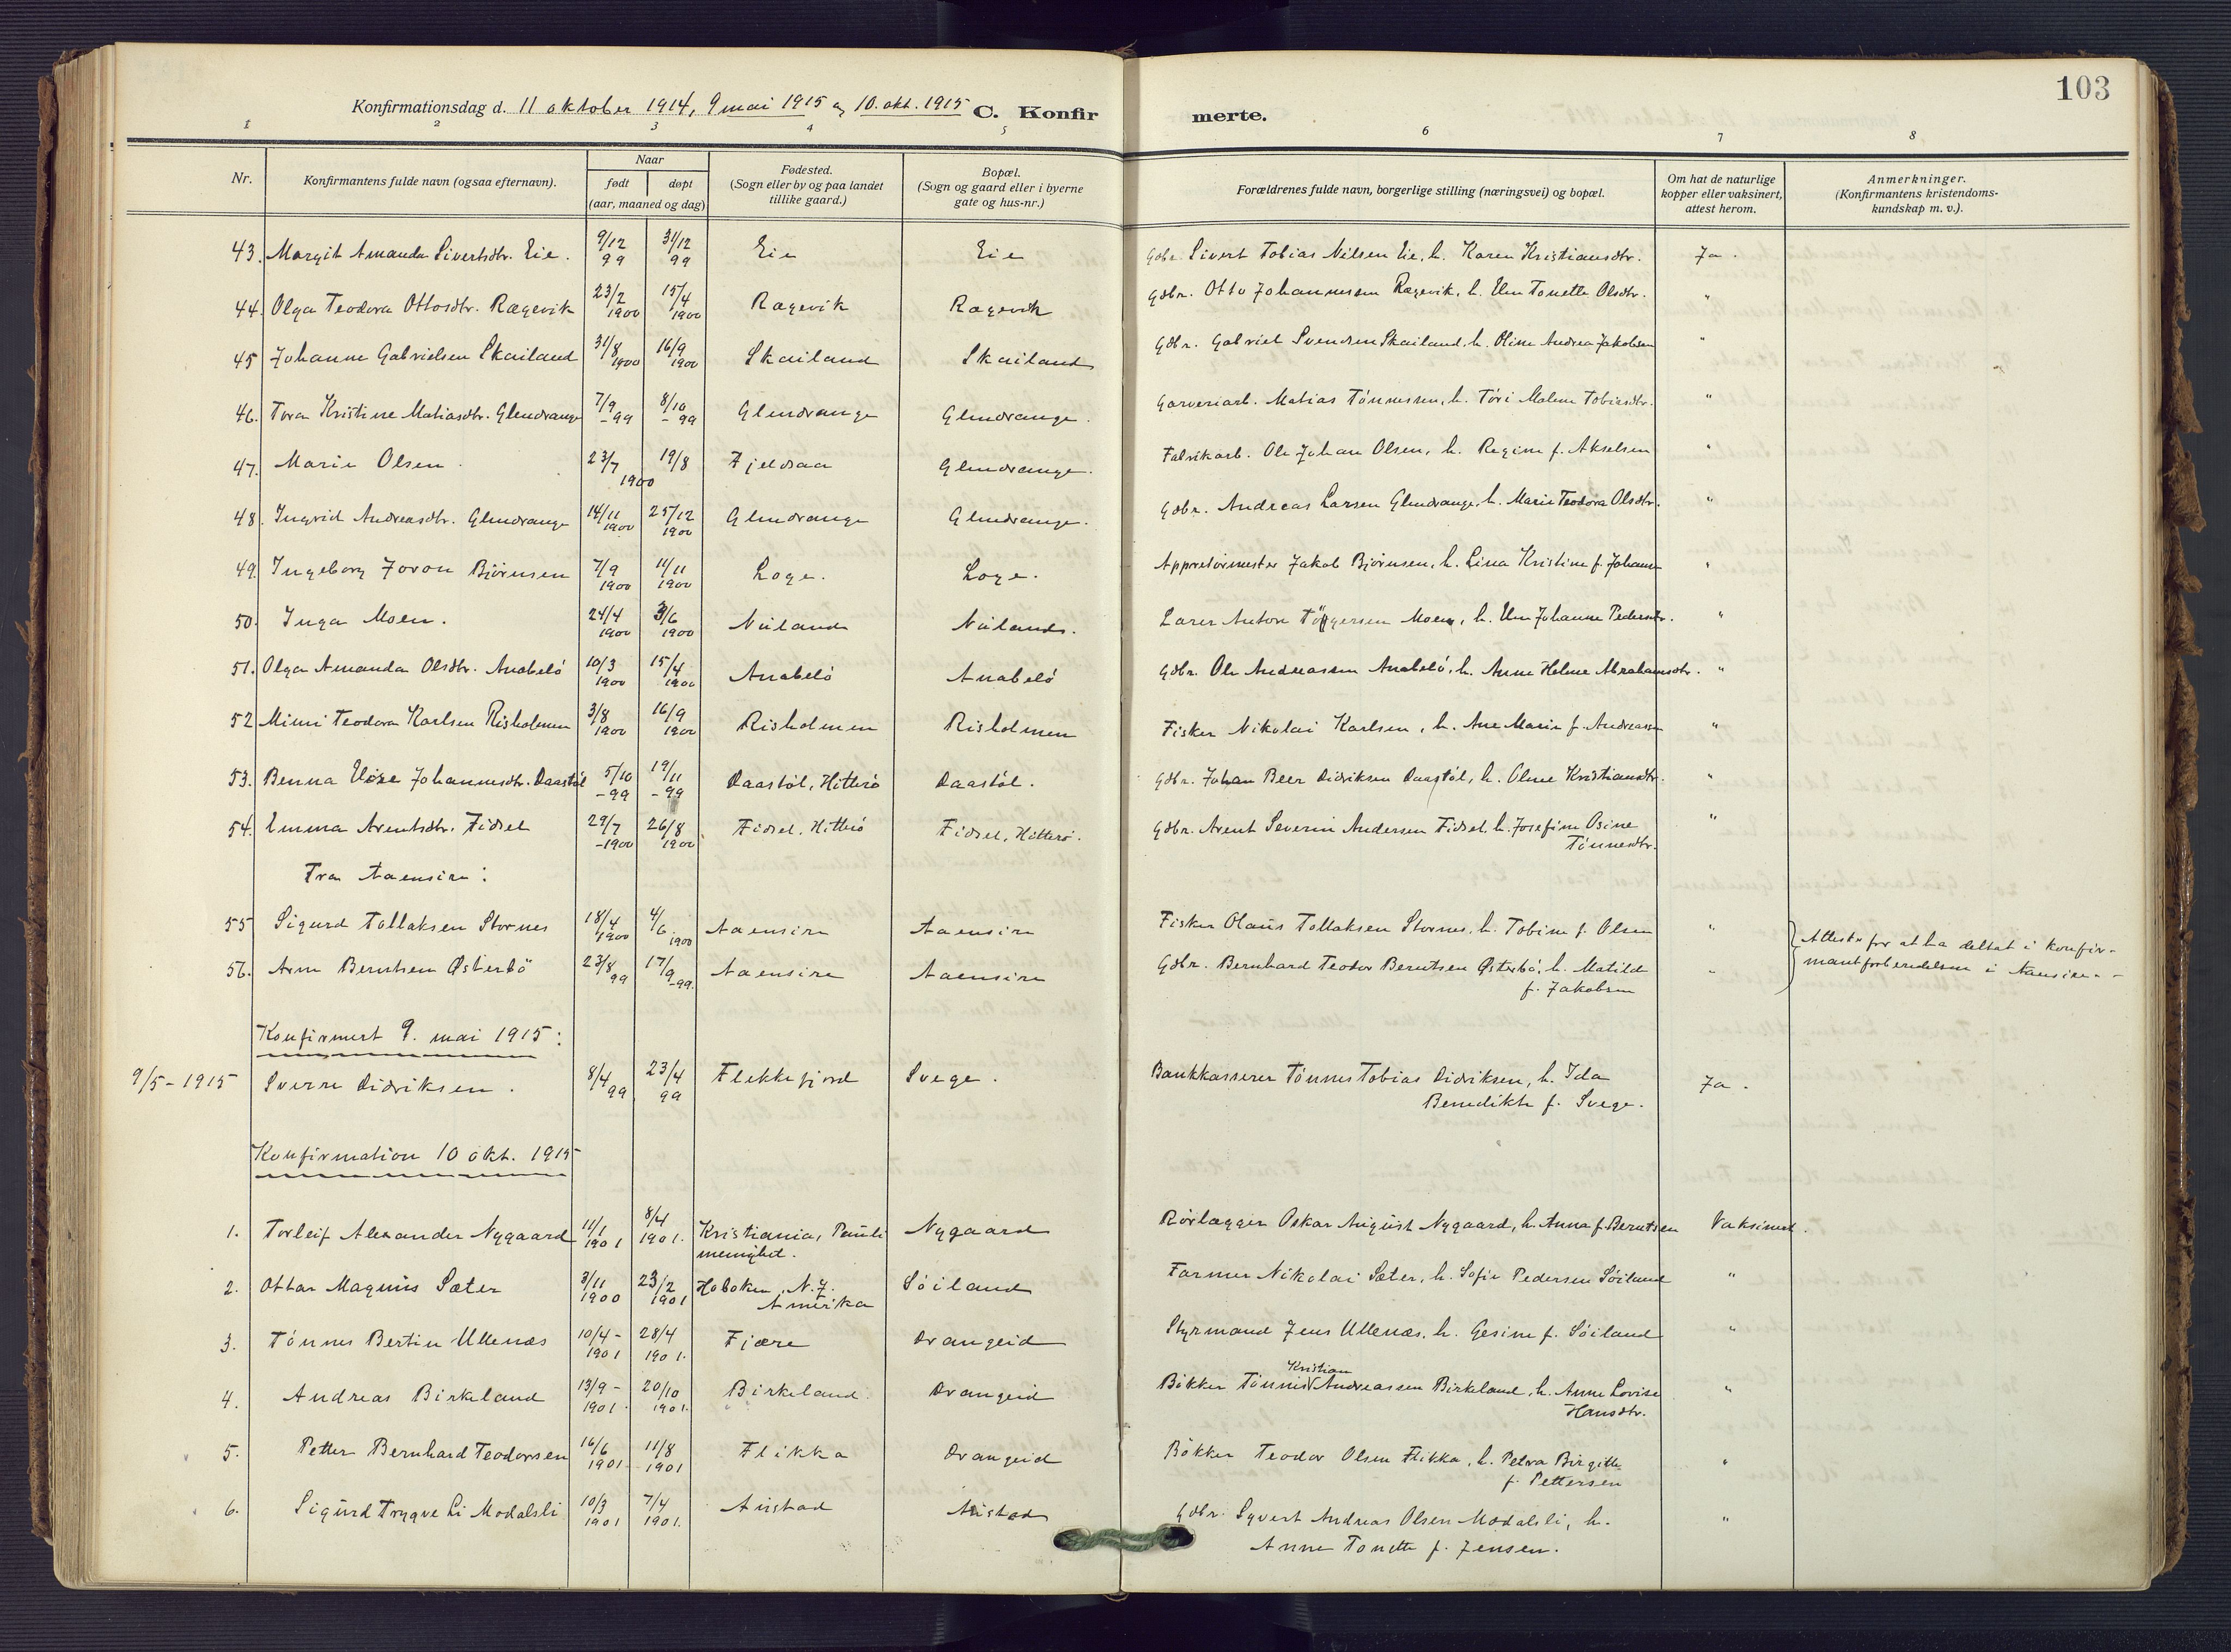 103
Konfirmationsdag d. 11 oktober 1914, 9 mai 1915 og 10. okt. 1915 C. Konfirmerte.
1 2 3 4 5 6 7 8
Nr. Konfirmantens fulde navn (ogsaa efternavn). Naar født døpt (aar, maaned og dag) Fødested. (Sogn eller by og paa landet tillike gaard.) Bopæl. (Sogn og gaard eller i byerne gate og hus-nr.) Forældrenes fulde navn, borgerlige stilling (næringsvei) og bopæl. Om hat de naturlige kopper eller vaksinert, attest herom. Anmerkninger. (Konfirmantens kristendomskundskap m. v.).
43. Margit Amanda Sivertsdtr. Eie. 9/12 99 31/12 99 Eie Eie Gdbr. Sivert Tobias Nilsen Eie, h. Karen Kristiansdtr. Ja.
44. Olga Teodora Ottosdtr. Rægevik 23/2 1900 15/4 1900 Rægevik Rægevik Gdbr. Otto Johannessen Rægevik, h. Elen Tonette Olsdtr. "
45 Johanne Gabrielsen Skailand 31/8 1900 16/9 1900 Skailand Skailand Gdbr. Gabriel Svendsen Skailand, h. Oline Andrea Jakobsen "
46. Tora Kristine Matiasdtr. Glendrange 7/9 -99 8/10 -99 Glendrange Glendrange. Garveriarb. Matias Tönnessen, h. Töri Malene Tobiasdtr. "
47. Marie Olsen. 23/7 19/8 1900 Fjeldsaa Glendrange. Fabrikarb. Ole Johan Olsen, h. Regine f. Akselsen "
48. Ingrid Andreasdtr. Glendrange 14/11 1900 25/12 1900 Glendrange Glendrange. Gdbr. Andreas Larsen Glendrange, h. Marie Teodora Olsdtr. "
49. Ingeborg Joron Björnsen 7/9 1900 11/11 1900 Loge. Loge. Appretörmester Jakob Björnsen, h. Lina Kristine f. Johann "
50. Inga Moen. 24/4 1900 3/6 1900 Nuland Nulands. Lærer Anton Moen, h. Elen Johanne Pedersdtr. "
51. Olga Amanda Olsdtr. Anabelö 10/3 1900 15/4 1900 Anabelö Anabelö Gdbr. Ole Andreassen Anabelö, h. Anne Helene Abrahamsdtr. "
52 Mimi Teodora Karlsen Risholmen 3/8 1900 16/9 1900 Risholmen Risholmen Fisker Nikolai Karlsen, h. Ane Marie f. Andreassen "
53. Benna Elise Johannesdtr. Daastöl 5/10 -99 19/11 -99 Daastöl, Hitterö Daastöl. Gdbr. Johan Beer Didriksen Daastöl, h. Olene Kristiansdtr. "
54. Emma Arentsdtr. Fidsel 29/7 -1900 26/8 1900 Fidsel, Hitterö Fidsel, Hitterö. Gdbr. Arent Severin Andersen Fidsel, h. Josefine Osine Tönnesdtr. "
Fra Aaensire:
55 Sigurd Tollaksen Stornes 18/4 1900 4/6 1900 Aaensire Aaensire Fisker Olaus Tollaksen Stornes, h. Tobine f. Olsen " Attester for at ha deltat i konfir-
56. Arne Berntsen Østerbö 23/8 99 17/9 -99. Aaensire Aaensire Gdbr. Bernhard Teodor Berntsen Østerbö, h. Matilde f. Jakobsen " mantforberedelsen i Aaensire
Konfirmert 9. mai 1915:
9/5-1915 Sverre Didriksen. 8/4 99 23/4 99 Flekkefjord Svege. Bankkasserer Tönnes Tobias Didriksen, h. Ida Benedikte f. Svege. Ja.
Konfirmation 10 okt. 1915
1. Torleif Alexander Nygaard 11/1 1901 8/4 1901. Kristiania, Pauli menighet. Nygaard Rörlægger Oskar August Nygaard, h. Anna f. Berntsen Vaksinert.
2. Ottar Magnus Sæter 3/11 1900 23/2 1901 Hoboken, N.J. Amerika Söiland Farmer Nikolai Sæter, h. Sofie Pedersen Söiland "
3. Tönnes Bertin Ullenæs 10/4- 1901 28/4 1901. Fjære Drangeid Styrmand Jens Ullenæs, h. Gesine f. Söiland "
4. Andreas Birkeland 13/9- 1901. 20/10 1901. Birkeland. Drangeid Bökker Tönnes Kristian Andreassen Birkeland, h. Anne Lovise Hansdtr. "
5. Petter Bernhard Teodorsen 16/6 1901 11/8 1901 Flikka Drangeid Bökker Teodor Olsen Flikka, h. Petra Birgitte f. Pettersen "
6. Sigurd Trygve Li Modalsli 10/3 1901 7/4 1901. Austad Austad Gdbr. Syvert Andreas Olsen Modalsli, h. Anne Tonette f. Jensen. "